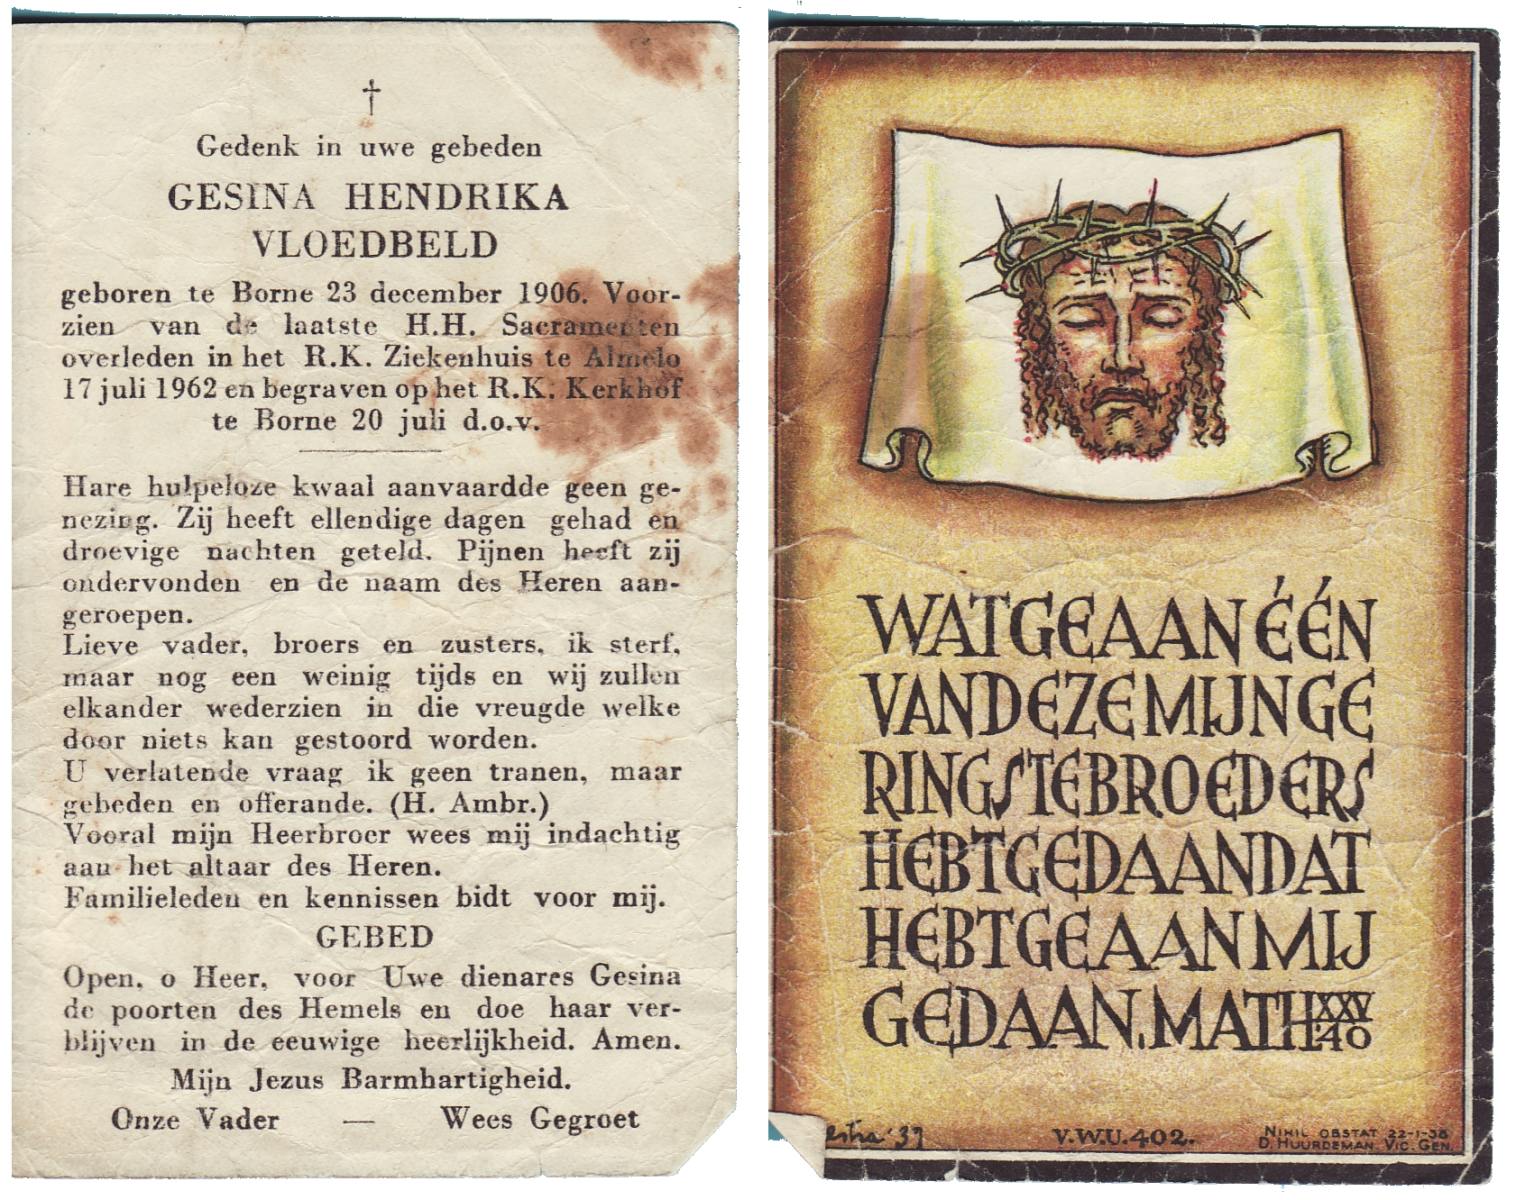 †
Gedenk in uwe gebeden
GESINA HENDRIKA
VLOEDBELD
geboren te Borne 23 december 1906. Voor-
zien van de laatste H.H. Sacramenten
overleden in het R.K. Ziekenhuis te Almelo
17 juli 1962 en begraven op het R.K. Kerkhof
te Borne 20 juli d.o.v.
Hare hulpeloze kwaal aanvaardde geen ge-
nezing. Zij heeft ellendige dagen gehad en
droevige nachten geteld. Pijnen heeft zij
ondervonden en de naam des Heren aan-
geroepen.
Lieve vader, broers en zusters, ik sterf,
maar nog een weinig tijds en wij zullen
elkander wederzien in die vreugde welke
door niets kan gestoord worden.
U verlatende vraag ik geen tranen, maar
gebeden en offerande. (H. Ambr.)
Vooral mijn Heerbroer wees mij indachtig
aan het altaar des Heren.
Familieleden en kennissen bidt voor mij.
GEBED
Open, o Heer, voor Uwe dienares Gesina
de poorten des Hemels en doe haar ver-
blijven in de eeuwige heerlijkheid. Amen.
Mijn Jezus Barmhartigheid.
Onze Vader — Wees Gegroet
WAT GE AAN ÉÉN
VAN DEZE MIJN GE
RINGSTE BROEDERS
HEBT GEDAAN DAT
HEBT GE AAN MIJ
GEDAAN. MATTH XXV 40
V.W.U. 402.
NIHIL OBSTAT 22-1-38
D. HUURDEMAN. VIC. GEN.